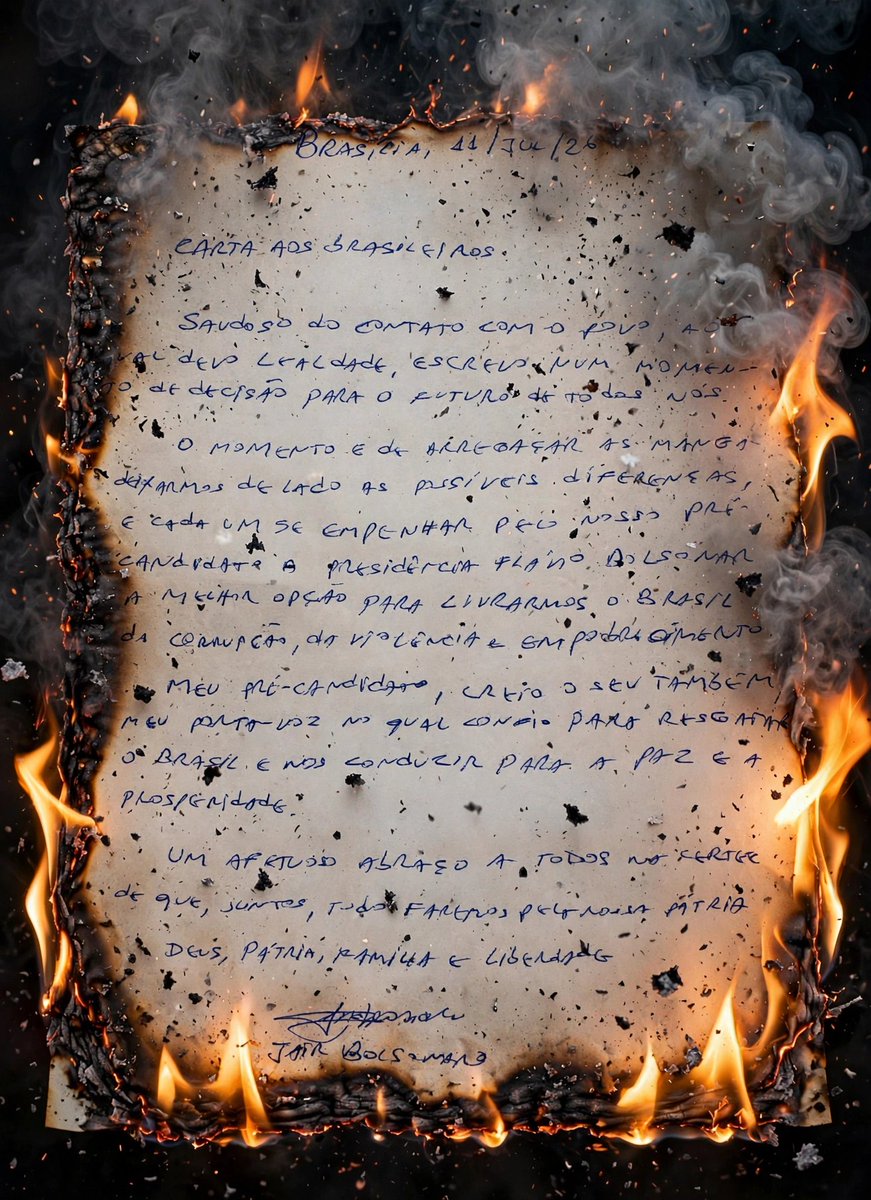 BRASÍLIA, 11/JUL/26
CARTA AOS BRASILEIROS.
SAUDOSO DO CONTATO COM O POVO, AO
UAL DEVO LEALDADE, ESCREVO NUM MOMEN-
TO DE DECISÃO PARA O FUTURO DE TODOS NÓS
O MOMENTO E DE ARREGAÇAR AS MANGA
DEIXARMOS DE LADO AS POSSÍVEIS DIFERENÇAS,
E CADA UM SE EMPENHAR PELO NOSSO PRÉ-
CANDIDATO A PRESIDÊNCIA FLÁVIO BOLSONAR
A MELHOR OPÇÃO PARA LIVRARMOS O BRASIL
DA CORRUPÇÃO, DA VIOLÊNCIA E EMPOBRECIMENTO
MEU PRÉ-CANDIDATO, CREIO O SEU TAMBÉM,
MEU PORTA-VOZ NO QUAL CONFIO PARA RESGATAR
O BRASIL E NOS CONDUZIR PARA A PAZ E A
PROSPERIDADE.
UM AFETUOSO ABRAÇO A TODOS NA CERTEZ
DE QUE, JUNTOS, TUDO FAREMOS PELA NOSSA PÁTRIA
DEUS, PÁTRIA, FAMÍLIA E LIBERDADE
JAIR BOLSONARO